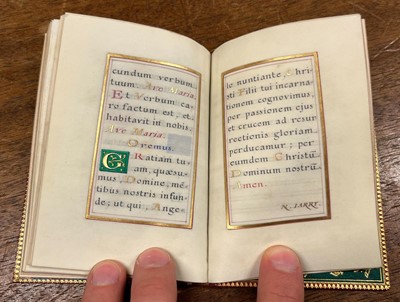 cundum verbum
tuum. Ave Maria.
Et Verbum ca
ro factum est, et
habitavit in nobis.
Ave Maria.
Oremus.
GRatiam tu
am, quæsu
mus, Domine, mē
tibus nostris infun
de; ut qui, Ange
lo nuntiante, Chri
sti Filii tui incarna
tionem cognovimus,
per passionem ejus
et crucem ad resur
rectionis gloriam.
perducamur; per
eumdem Christū
Dominum nostrū
Amen.
N. IARRY.